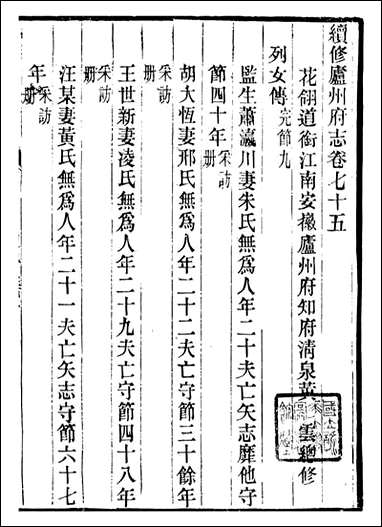 續修廬州府志卷七十五
花翎道銜江南安徽廬州府知府清泉黃雲總修
列女傳 完節九
監生蕭瀛川妻朱氏無爲人年二十夫亡矢志靡他守
節四十年 采訪册
胡大恆妻邢氏無爲人年二十二夫亡守節三十餘年
采訪册
王世新妻凌氏無爲人年二十九夫亡守節四十八年
采訪册
汪某妻黃氏無爲人年二十一夫亡矢志守節六十七
年 采訪册